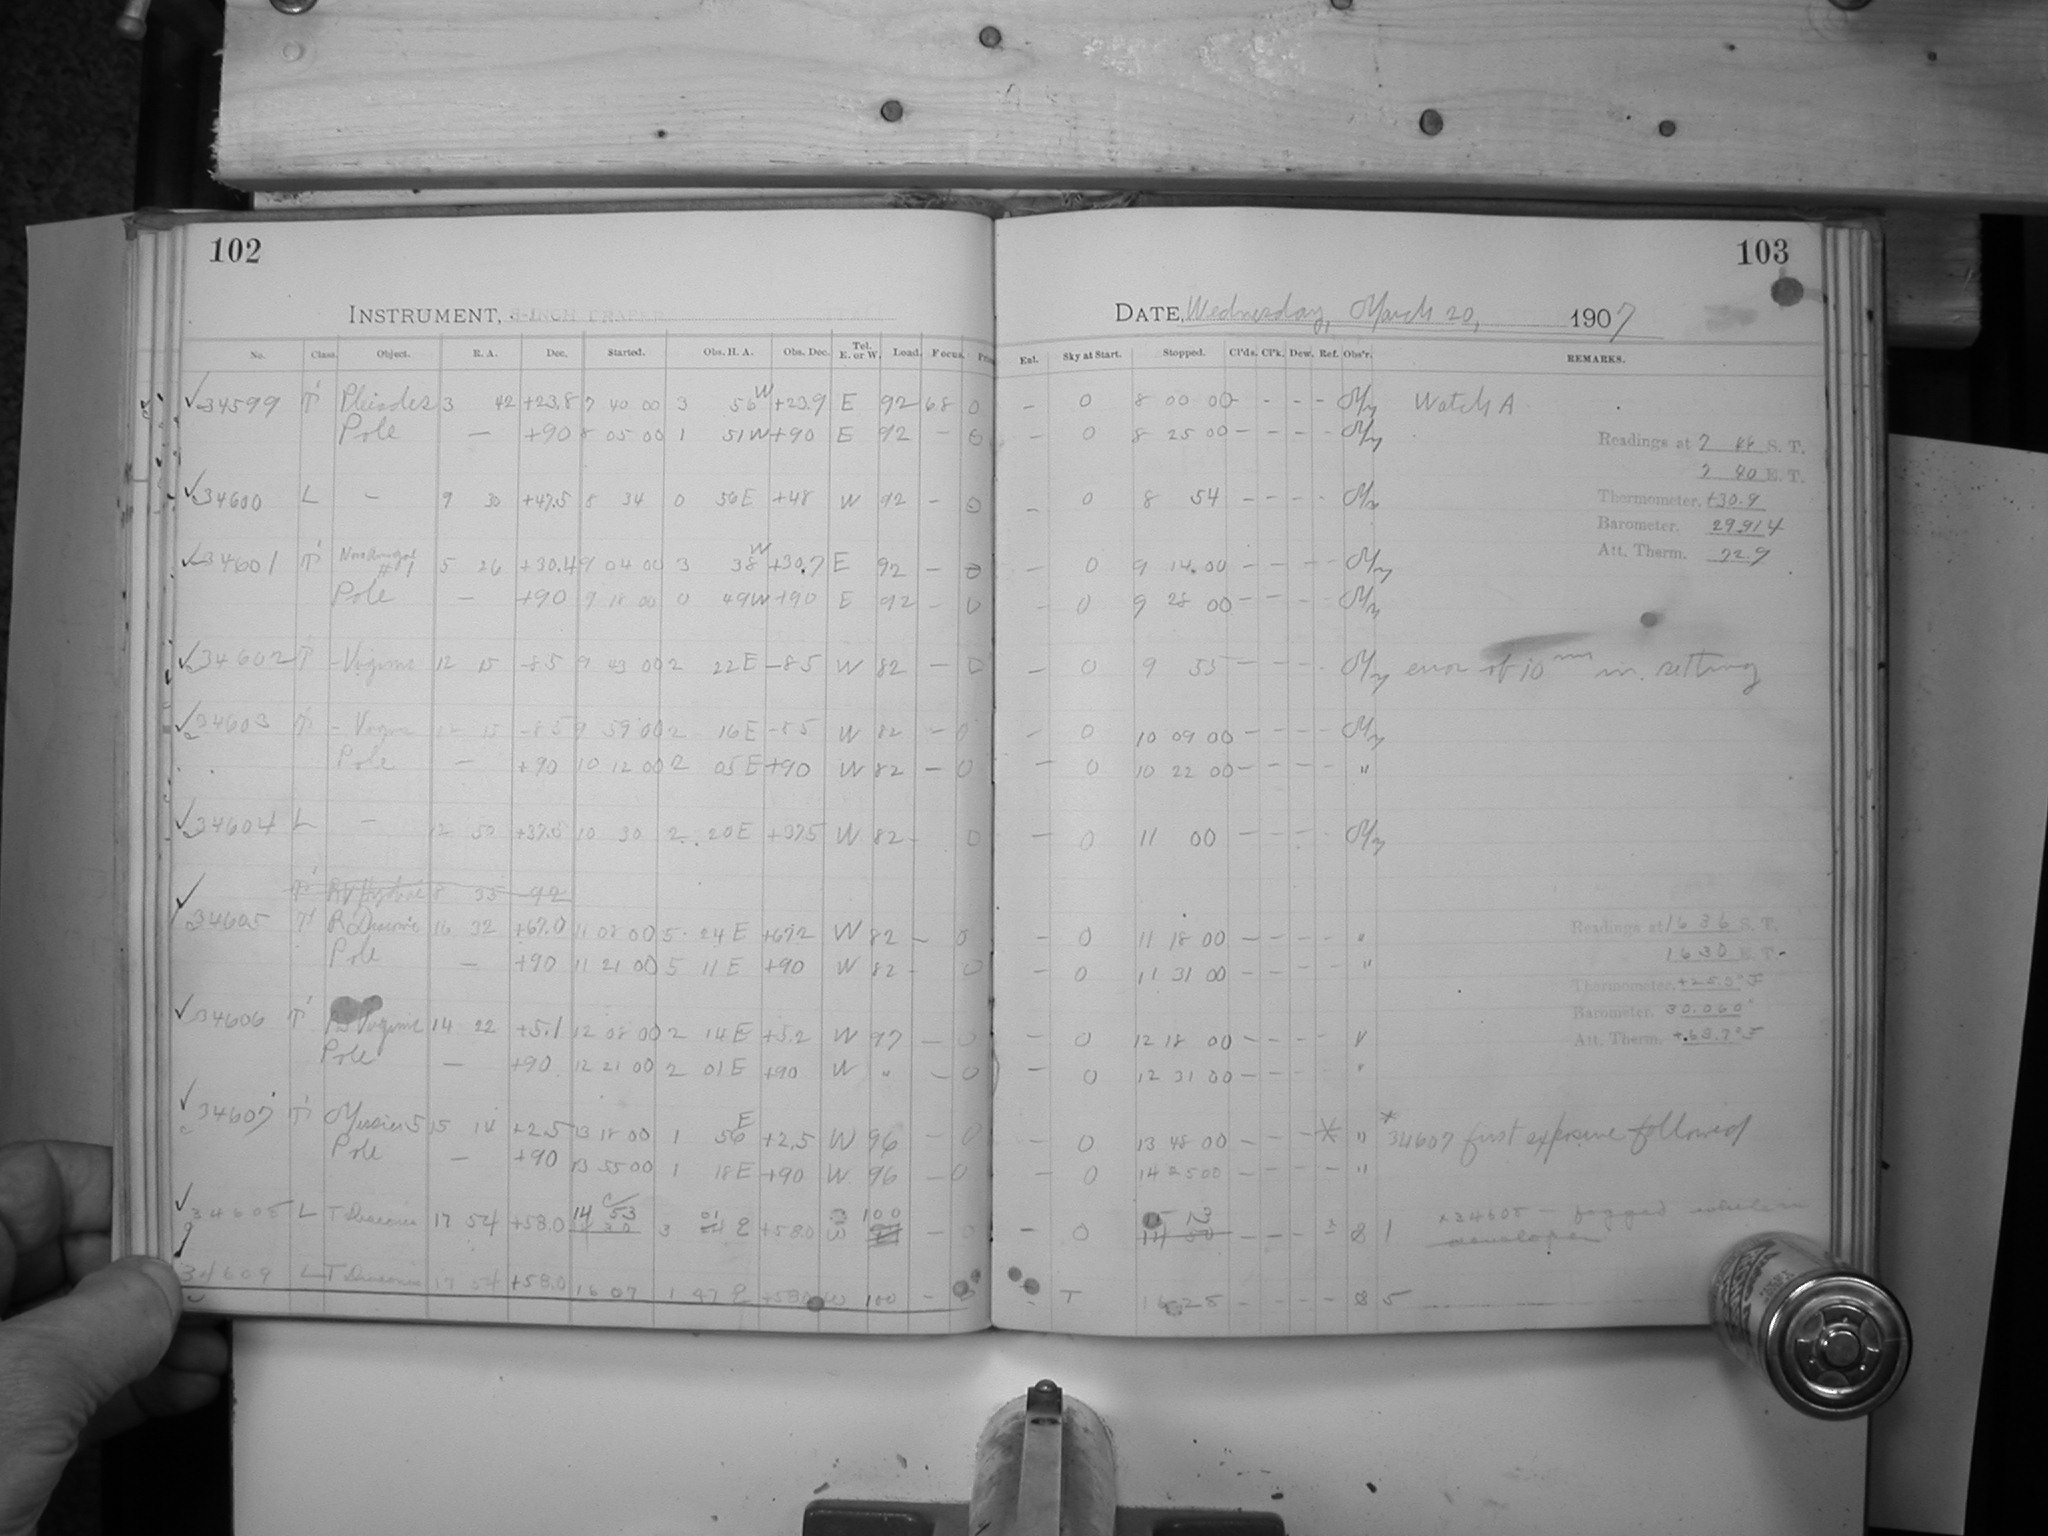 102
INSTRUMENT, 8-INCH DRAPER
No. Class. Object. R. A. Dec. Started. Obs. H. A. Obs. Dec. Tel. E. or W. Load. Focus.
34599 T' Pleiades 3 42 +23.8 7 40 00 3 56 W +23.9 E 92 68 0
Pole — +90 8 05 00 1 51 W +90 E 92 - 0
34600 L - 9 30 +47.5 8 34 0 56 E +48 W 92 - 0
34601 T' #1 5 26 +30.4 9 04 00 3 38 W +30.7 E 92 - 0
Pole — +90 9 18 00 0 49 W +90 E 92 - 0
34602 T' - Virginis 12 15 -85 9 43 00 2 22 E -85 W 82 - 0
34603 T' - Virginis 12 15 -85 9 59 00 2 16 E -85 W 82 - 0
Pole — +90 10 12 00 2 05 E +90 W 82 - 0
34604 L - 12 50 +37.5 10 30 2 20 E +37.5 W 82 - 0
T' 8 35 -92
34605 T' R Draconis 16 32 +67.0 11 08 00 5 24 E +67.2 W 82 - 0
Pole — +90 11 21 00 5 11 E +90 W 82 - 0
34606 T' RS Virginis 14 22 +5.1 12 08 00 2 14 E +5.2 W 97 - 0
Pole — +90 12 21 00 2 01 E +90 W " - 0
34607 T' Messier 5 15 14 +2.5 13 18 00 1 56 E +2.5 W 96 - 0
Pole — +90 13 55 00 1 18 E +90 W 96 - 0
L T Draconis 17 54 +58.0 14 53 3 01 E +58.0 W 100 - 0
34609 L T Draconis 17 54 +58.0 16 07 1 47 E +58.0 W 100 -
103
DATE, Wednesday, March 20, 1907
Enl. Sky at Start. Stopped. Cl'ds. Cl'k. Dew. Ref. Obs'r. REMARKS.
- 0 8 00 00 - - - - My Watch A
- 0 8 25 00 - - - - My
Readings at 7 S. T.
7 40 E. T.
- 0 8 54 - - - - My
Thermometer. +30.9
Barometer. 29.914
Att. Therm. 72.9
- 0 9 14 00 - - - - My
- 0 9 28 00 - - - - My
- 0 9 55 - - - - My error of 10 min in setting
- 0 10 09 00 - - - - My
- 0 10 22 00 - - - - "
- 0 11 00 - - - - My
- 0 11 18 00 - - - - "
- 0 11 31 00 - - - - "
Readings at 16 36 S. T.
16 30 E. T.
Thermometer.
Barometer. 30.060
Att. Therm. +68.7° F
- 0 12 18 00 - - - "
- 0 12 31 00 - - - "
- 0 13 48 00 - - - * " * 34607 first exposure followed
- 0 14 25 00 - - - - "
- 0 15 13 - - - 8 1 fogged when in developer
- T 16 28 - - - - 8 5